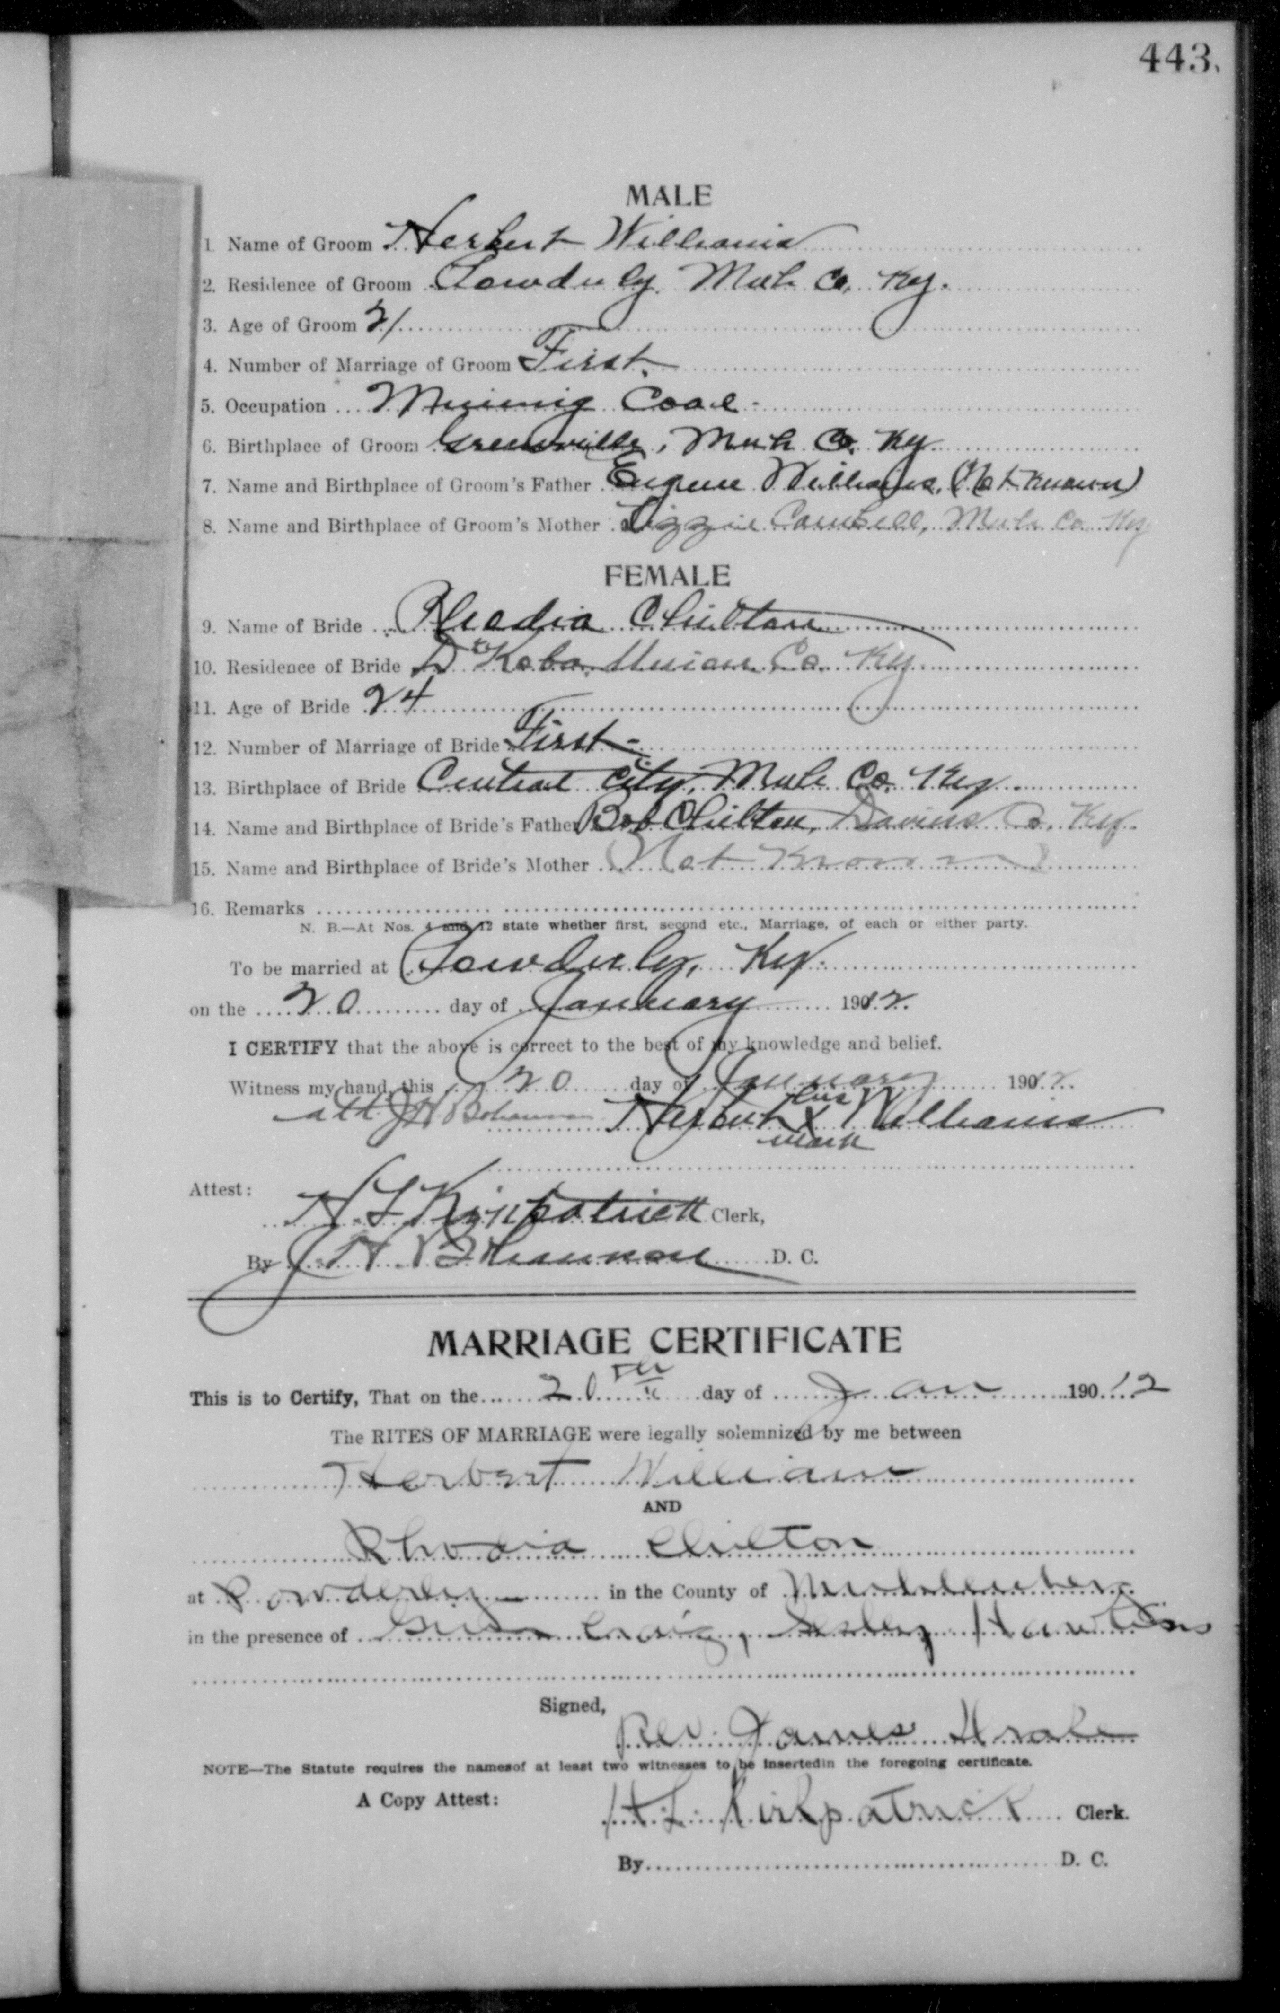 443.
MALE
1. Name of Groom Herbert Williams
2. Residence of Groom Powderly Muh Co. Ky.
3. Age of Groom 21
4. Number of Marriage of Groom First.
5. Occupation Mining Coal -
6. Birthplace of Groom Greenville, Muh Co. Ky.
7. Name and Birthplace of Groom's Father Eugene Williams, (Not Known)
8. Name and Birthplace of Groom's Mother Lizzie Cambell, Muh Co Ky
FEMALE
9. Name of Bride Rhodia Chilton
10. Residence of Bride DeKoba, Union Co. Ky.
11. Age of Bride 24
12. Number of Marriage of Bride First -
13. Birthplace of Bride Central City, Muh Co. Ky.
14. Name and Birthplace of Bride's Father Bob Chilton, Daviess Co. Ky.
15. Name and Birthplace of Bride's Mother (Not Known)
16. Remarks
N. B.—At Nos. 4 and 12 state whether first, second etc., Marriage, of each or either party.
To be married at Powderly, Ky.
on the 20 day of January 1912.
I CERTIFY that the above is correct to the best of my knowledge and belief.
Witness my hand, this 20 day of January 1912.
att J H Bohannon Herbert his X mark Williams
Attest:
H L Kirkpatrick Clerk,
By J H Bohannon D. C.
MARRIAGE CERTIFICATE
This is to Certify, That on the 20th day of Jan 190 12
The RITES OF MARRIAGE were legally solemnized by me between
Herbert William
AND
Rhodia Chilton
at Powderly in the County of Muhlenberg
in the presence of Craig, Lesley Hawkins
Signed,
Rev. James
NOTE—The Statute requires the namesof at least two witnesses to be insertedin the foregoing certificate.
A Copy Attest:
H. L. Kirkpatrick Clerk.
By D. C.